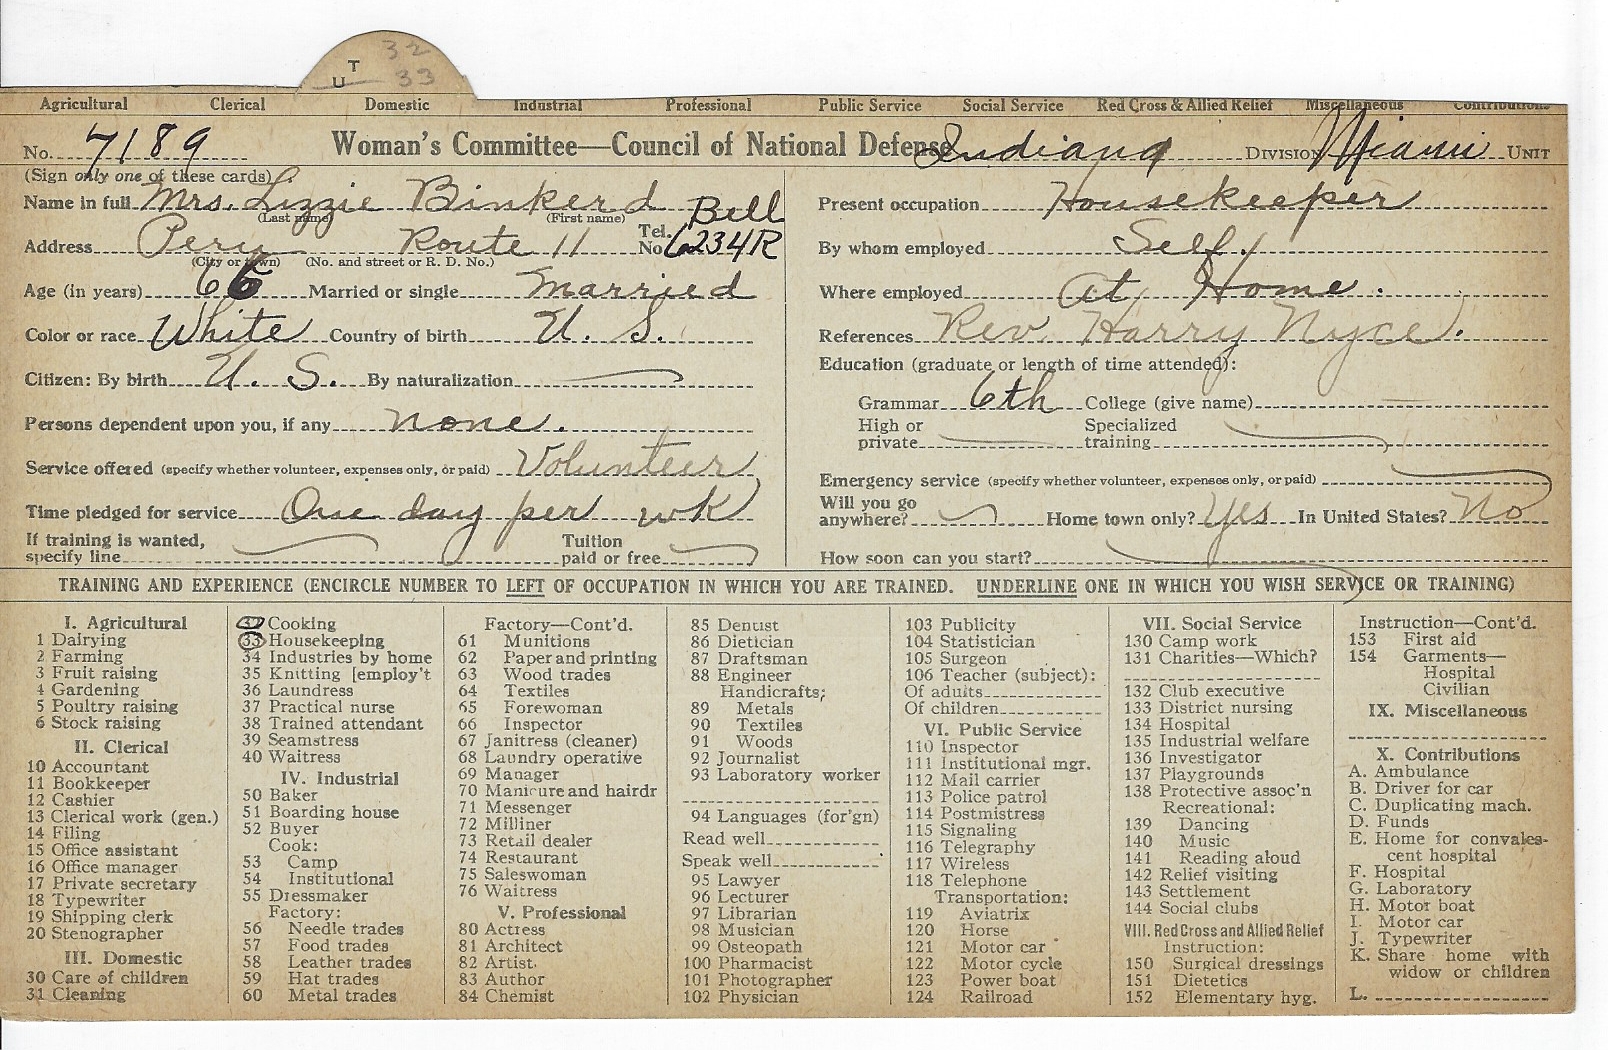 T 32
U 33
Agricultural Clerical Domestic Industrial Professional Public Service Social Service Red Cross & Allied Relief Miscellaneous Contributions
No. 7189 Woman's Committee—Council of National Defense Indiana DIVISION Miami UNIT
(Sign only one of these cards)
Name in full Mrs. Lizzie Binkerd
(Last name) (First name)
Address Peru Route 11 Tel. No. Bell 6234R
(City or town) (No. and street or R. D. No.)
Age (in years) 66 Married or single Married
Color or race White Country of birth U. S.
Citizen: By birth U. S. By naturalization
Persons dependent upon you, if any none.
Service offered (specify whether volunteer, expenses only, or paid) Volunteer
Time pledged for service One day per wk
If training is wanted, specify line Tuition paid or free
Present occupation Housekeeper
By whom employed Self.
Where employed At Home.
References Rev. Harry Nyce.
Education (graduate or length of time attended):
Grammar 6th College (give name)
High or private Specialized training
Emergency service (specify whether volunteer, expenses only, or paid)
Will you go anywhere? Home town only? Yes In United States? No
How soon can you start?
TRAINING AND EXPERIENCE (ENCIRCLE NUMBER TO LEFT OF OCCUPATION IN WHICH YOU ARE TRAINED. UNDERLINE ONE IN WHICH YOU WISH SERVICE OR TRAINING)
I. Agricultural
1 Dairying
2 Farming
3 Fruit raising
4 Gardening
5 Poultry raising
6 Stock raising
II. Clerical
10 Accountant
11 Bookkeeper
12 Cashier
13 Clerical work (gen.)
14 Filing
15 Office assistant
16 Office manager
17 Private secretary
18 Typewriter
19 Shipping clerk
20 Stenographer
III. Domestic
30 Care of children
31 Cleaning
32 Cooking
33 Housekeeping
34 Industries by home
35 Knitting [employ't
36 Laundress
37 Practical nurse
38 Trained attendant
39 Seamstress
40 Waitress
IV. Industrial
50 Baker
51 Boarding house
52 Buyer
Cook:
53 Camp
54 Institutional
55 Dressmaker
Factory:
56 Needle trades
57 Food trades
58 Leather trades
59 Hat trades
60 Metal trades
Factory—Cont'd.
61 Munitions
62 Paper and printing
63 Wood trades
64 Textiles
65 Forewoman
66 Inspector
67 Janitress (cleaner)
68 Laundry operative
69 Manager
70 Manicure and hairdr
71 Messenger
72 Milliner
73 Retail dealer
74 Restaurant
75 Saleswoman
76 Waitress
V. Professional
80 Actress
81 Architect
82 Artist
83 Author
84 Chemist
85 Dentist
86 Dietician
87 Draftsman
88 Engineer
Handicrafts:
89 Metals
90 Textiles
91 Woods
92 Journalist
93 Laboratory worker
94 Languages (for'gn)
Read well
Speak well
95 Lawyer
96 Lecturer
97 Librarian
98 Musician
99 Osteopath
100 Pharmacist
101 Photographer
102 Physician
103 Publicity
104 Statistician
105 Surgeon
106 Teacher (subject):
Of adults
Of children
VI. Public Service
110 Inspector
111 Institutional mgr.
112 Mail carrier
113 Police patrol
114 Postmistress
115 Signaling
116 Telegraphy
117 Wireless
118 Telephone
Transportation:
119 Aviatrix
120 Horse
121 Motor car
122 Motor cycle
123 Power boat
124 Railroad
VII. Social Service
130 Camp work
131 Charities—Which?
132 Club executive
133 District nursing
134 Hospital
135 Industrial welfare
136 Investigator
137 Playgrounds
138 Protective assoc'n
Recreational:
139 Dancing
140 Music
141 Reading aloud
142 Relief visiting
143 Settlement
144 Social clubs
VIII. Red Cross and Allied Relief
Instruction:
150 Surgical dressings
151 Dietetics
152 Elementary hyg.
Instruction—Cont'd.
153 First aid
154 Garments—
Hospital
Civilian
IX. Miscellaneous
X. Contributions
A. Ambulance
B. Driver for car
C. Duplicating mach.
D. Funds
E. Home for convales-
cent hospital
F. Hospital
G. Laboratory
H. Motor boat
I. Motor car
J. Typewriter
K. Share home with
widow or children
L.